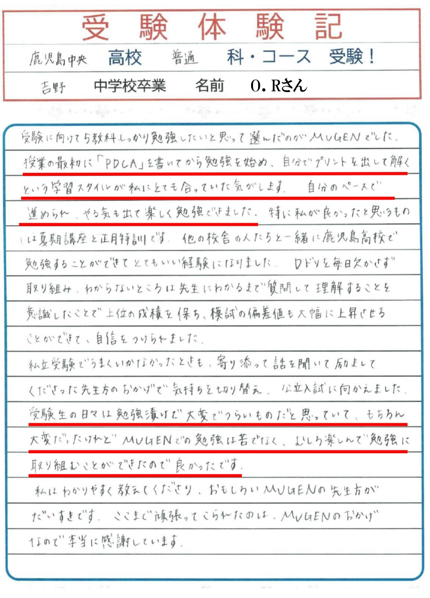 受験体験記
鹿児島中央 高校 普通 科・コース 受験！
吉野 中学校卒業 名前 O.Rさん
受験に向けて5教科しっかり勉強したいと思って選んだのがMUGENでした。
授業の最初に「PDCA」を書いてから勉強を始め、自分でプリントを出して解く
という学習スタイルが私にとても合っていた気がします。 自分のペースで
進められ、やる気も出て楽しく勉強できました。特に私が良かったと思うもの
は夏期講座と正月特訓です。他の校舎の人たちと一緒に鹿児島高校で
勉強することができてとてもいい経験になりました。Dドリを毎日欠かさず
取り組み、わからないところは先生にわかるまで質問して理解することを
意識したことで上位の成績を保ち、模試の偏差値も大幅に上昇させる
ことができて、自信をつけられました。
私立受験でうまくいかなかったときも、寄り添って話を聞いて励まして
くださった先生方のおかげで気持ちを切り替え、公立入試に向かえました。
受験生の日々は勉強漬けで大変でつらいものだと思っていて、もちろん
大変だったけれど MUGENでの勉強は苦でなく、むしろ楽しんで勉強に
取り組むことができたので良かったです。
私はわかりやすく教えてくださり、おもしろいMUGENの先生方が
だいすきです。ここまで頑張ってこられたのは、MUGENのおかげ
なので本当に感謝しています。